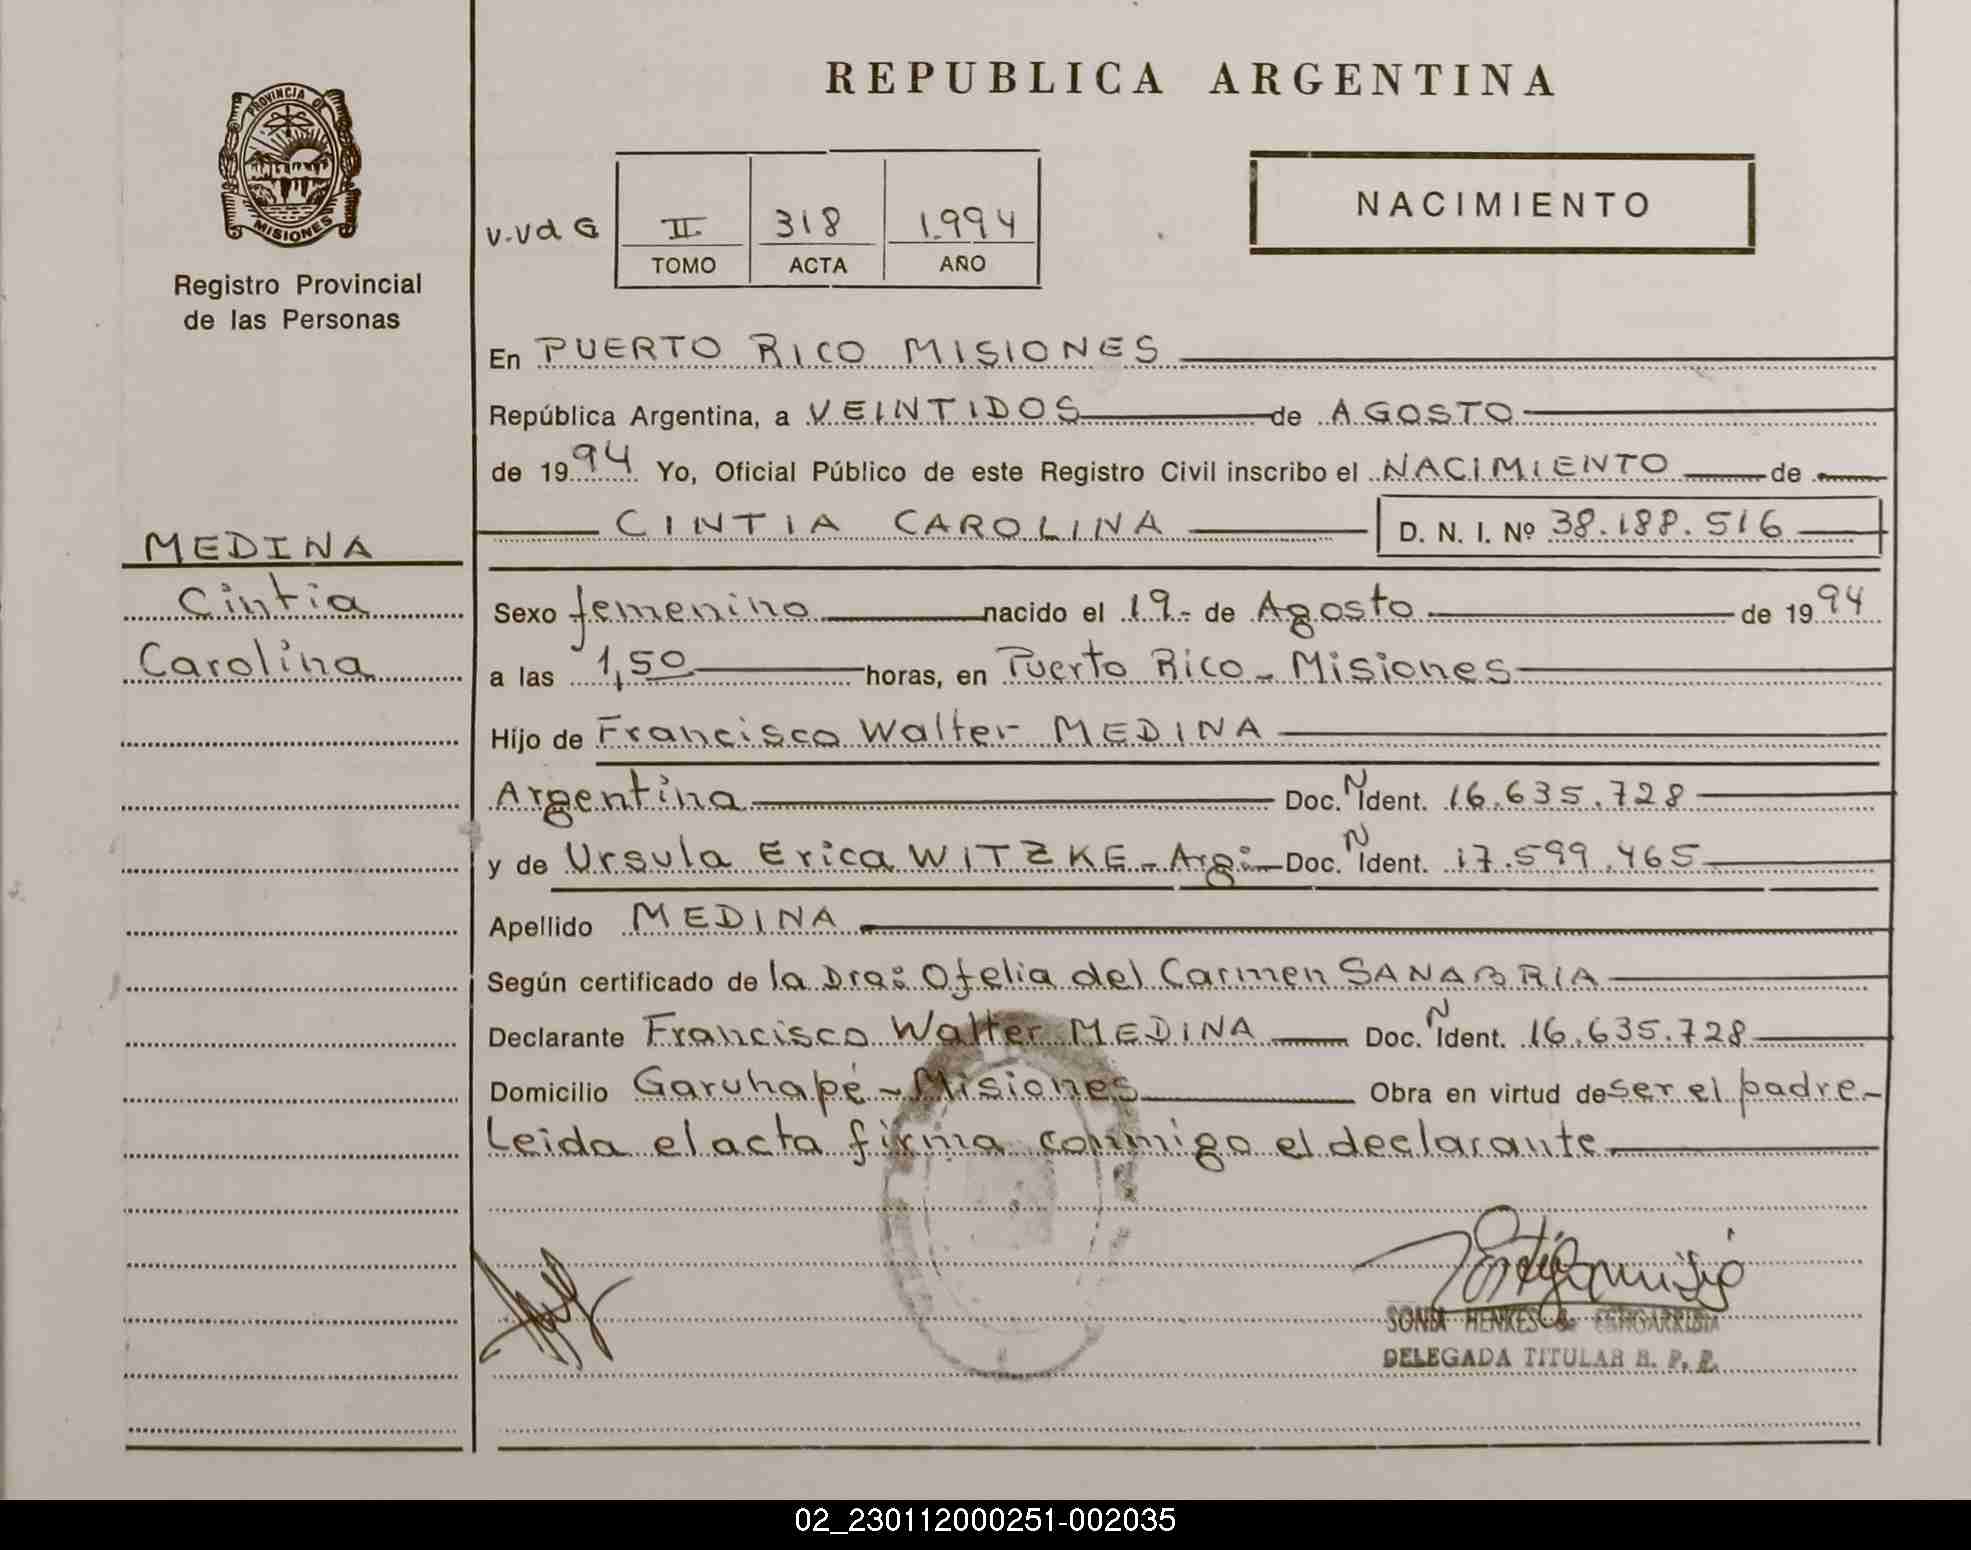 REPUBLICA ARGENTINA
PROVINCIA DE
MISIONES
Registro Provincial
de las Personas
NACIMIENTO
V.Vd G
II 318 1.994
TOMO ACTA AÑO
En PUERTO RICO MISIONES
República Argentina, a VEINTIDOS de AGOSTO
de 1994 Yo, Oficial Público de este Registro Civil inscribo el NACIMIENTO de
CINTIA CAROLINA D. N. I. Nº 38.188.516
MEDINA
Cintia
Carolina
Sexo femenino nacido el 19.- de Agosto de 1994
a las 1,50 horas, en Puerto Rico - Misiones
Hijo de Francisco Walter MEDINA
Argentina Doc. N Ident. 16.635.728
y de Ursula Erica WITZKE - Arg: Doc. N Ident. 17.599.465
Apellido MEDINA
Según certificado de la Dra: Ofelia del Carmen SANABRIA
Declarante Francisco Walter MEDINA Doc. N Ident. 16.635.728
Domicilio Garuhapé - Misiones Obra en virtud de ser el padre -
Leida el acta firma conmigo el declarante
SONIA HENKES de ESTIGARRIBIA
DELEGADA TITULAR R. P. P.
02_230112000251-002035